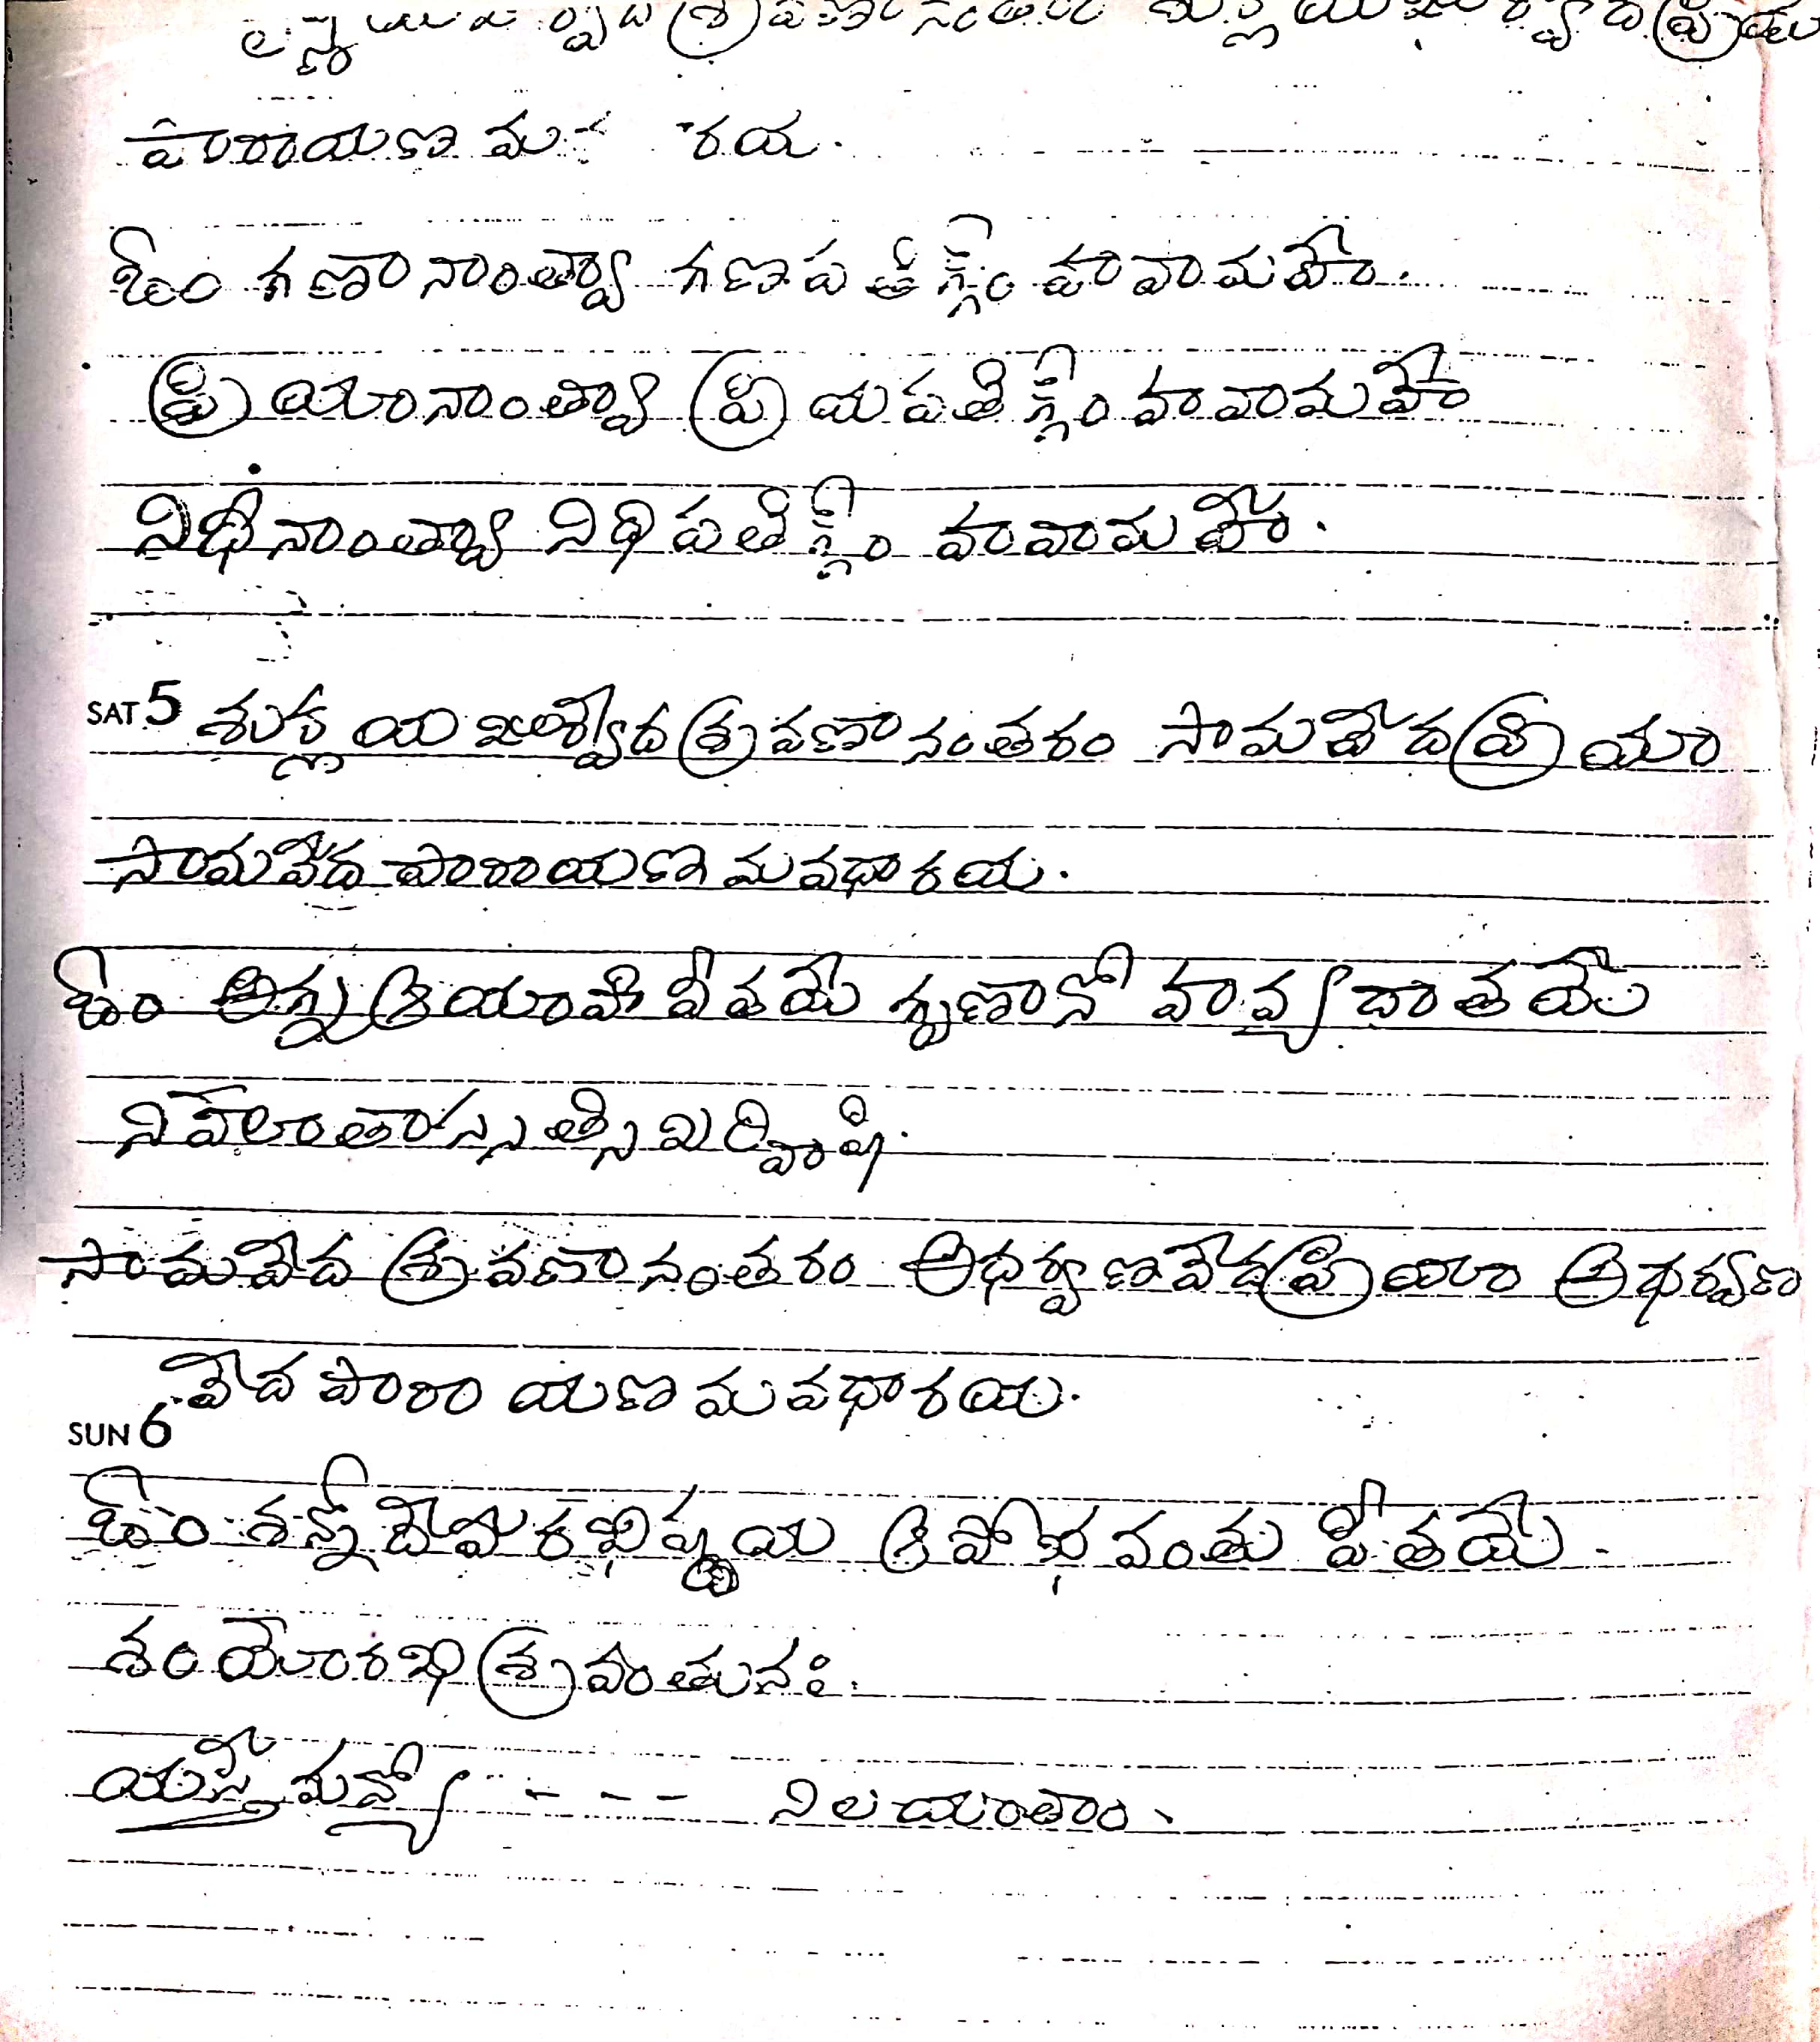 పారాయణ
ఓం గణానాంత్వా గణపతిగ్ం హవామహే.
ప్రియానాంత్వా ప్రియపతిగ్ం హవామహే
నిధీనాంత్వా నిధిపతిగ్ం హవామహే.
SAT 5 శుక్ల యజుర్వేద శ్రవణానంతరం సామవేద ప్రియా
సామవేద పారాయణ మవధారయ.
ఓం అగ్న ఆయాహి వీతయే గృణానో హవ్యదాతయే
నిహోతా సత్సి బర్హిషి.
సామవేద శ్రవణానంతరం అధర్వణవేద ప్రియా అథర్వణ
వేద పారాయణ మవధారయ.
SUN 6
ఓం శన్నోదేవీరభిష్టయ ఆపోభవంతు పీతయే.
శంయోరభి శ్రవంతునః.
యస్తేమన్యో - - - - నిలయంతాం.